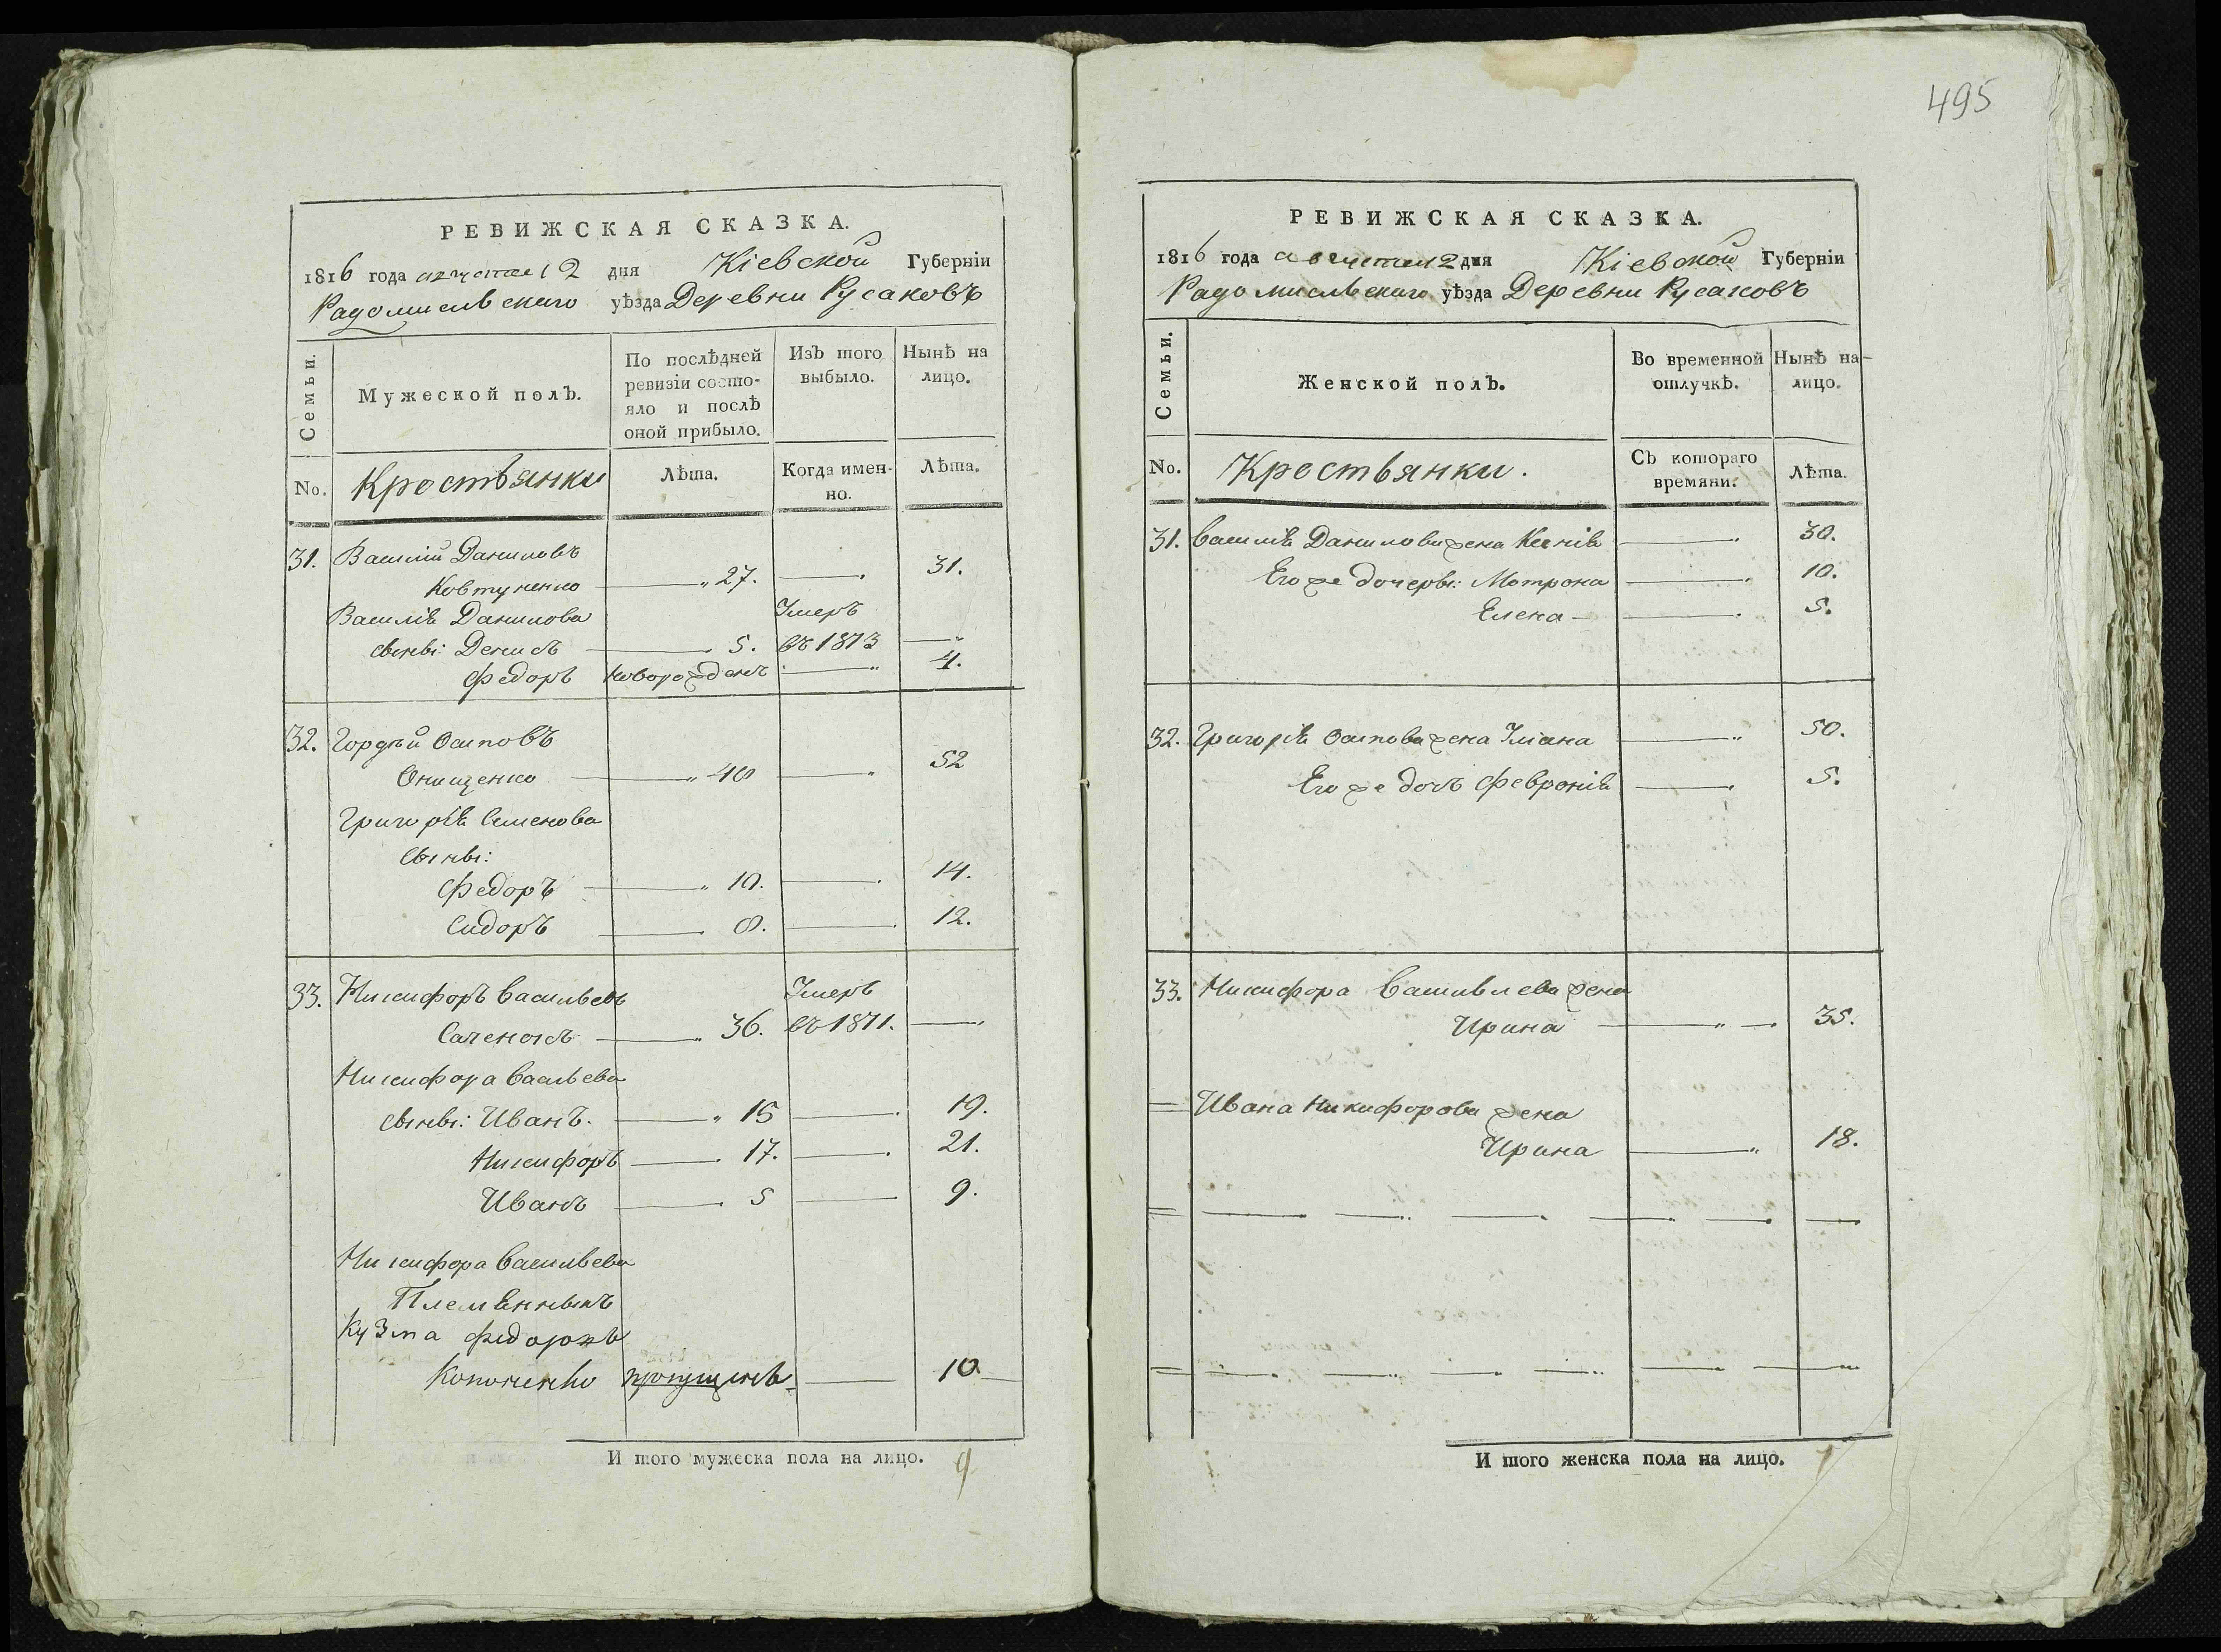 РЕВИЖСКАЯ СКАЗКА.
1816 года августа 12 дня Кіевской Губерніи
Радомисльскаго уѣзда Деревни Русаковъ
Семьи.
Мужеской полъ.
По послѣдней ревизіи состо-
яло и послѣ
оной прибыло.
Изъ того выбыло.
Нынѣ на лицо.
No.
Крестьянки
Лѣта.
Когда имен-
но.
Лѣта.
31. Василій Даниловъ
Ковтуненко 27. 31.
Василія Данилова Умеръ
сыны: Денисъ 5. въ 1813
Федоръ новорожденъ 4.
32. Гордѣй Осиповъ
Онищенко 40 52
Григорія Семенова
сыны:
Федоръ 10. 14.
Сидоръ 8. 12.
33. Никифоръ Васильевъ Умеръ
36. въ 1811.
Никифора Васильева
сыны: Иванъ. 15 19.
Никифоръ 17. 21.
Иванъ 5 9.
Никифора Васильева
Племѣнныкъ
Кузма Федоровъ
Кононенко пропущенъ 10.
И того мужеска пола на лицо. 9
495
РЕВИЖСКАЯ СКАЗКА.
1816 года августа 12 дня Кіевской Губерніи
Радомисльскаго уѣзда Деревни Русаковъ
Семьи.
Женской полъ.
Во временной
отлучкѣ.
Нынѣ на-
лицо.
No.
Крестьянки.
Съ котораго
времяни.
Лѣта.
31. Василія Данилова жена Ксенія 30.
Его же дочеры: Мотрона 10.
Елена 5.
32. Григорія Осипова жена Уліана 50.
Его же дочь Февронія 5.
33. Никифора Васильева жена
Ирина 35.
Ивана Никифорова жена
Ирина 18.
И того женска пола на лицо. 7